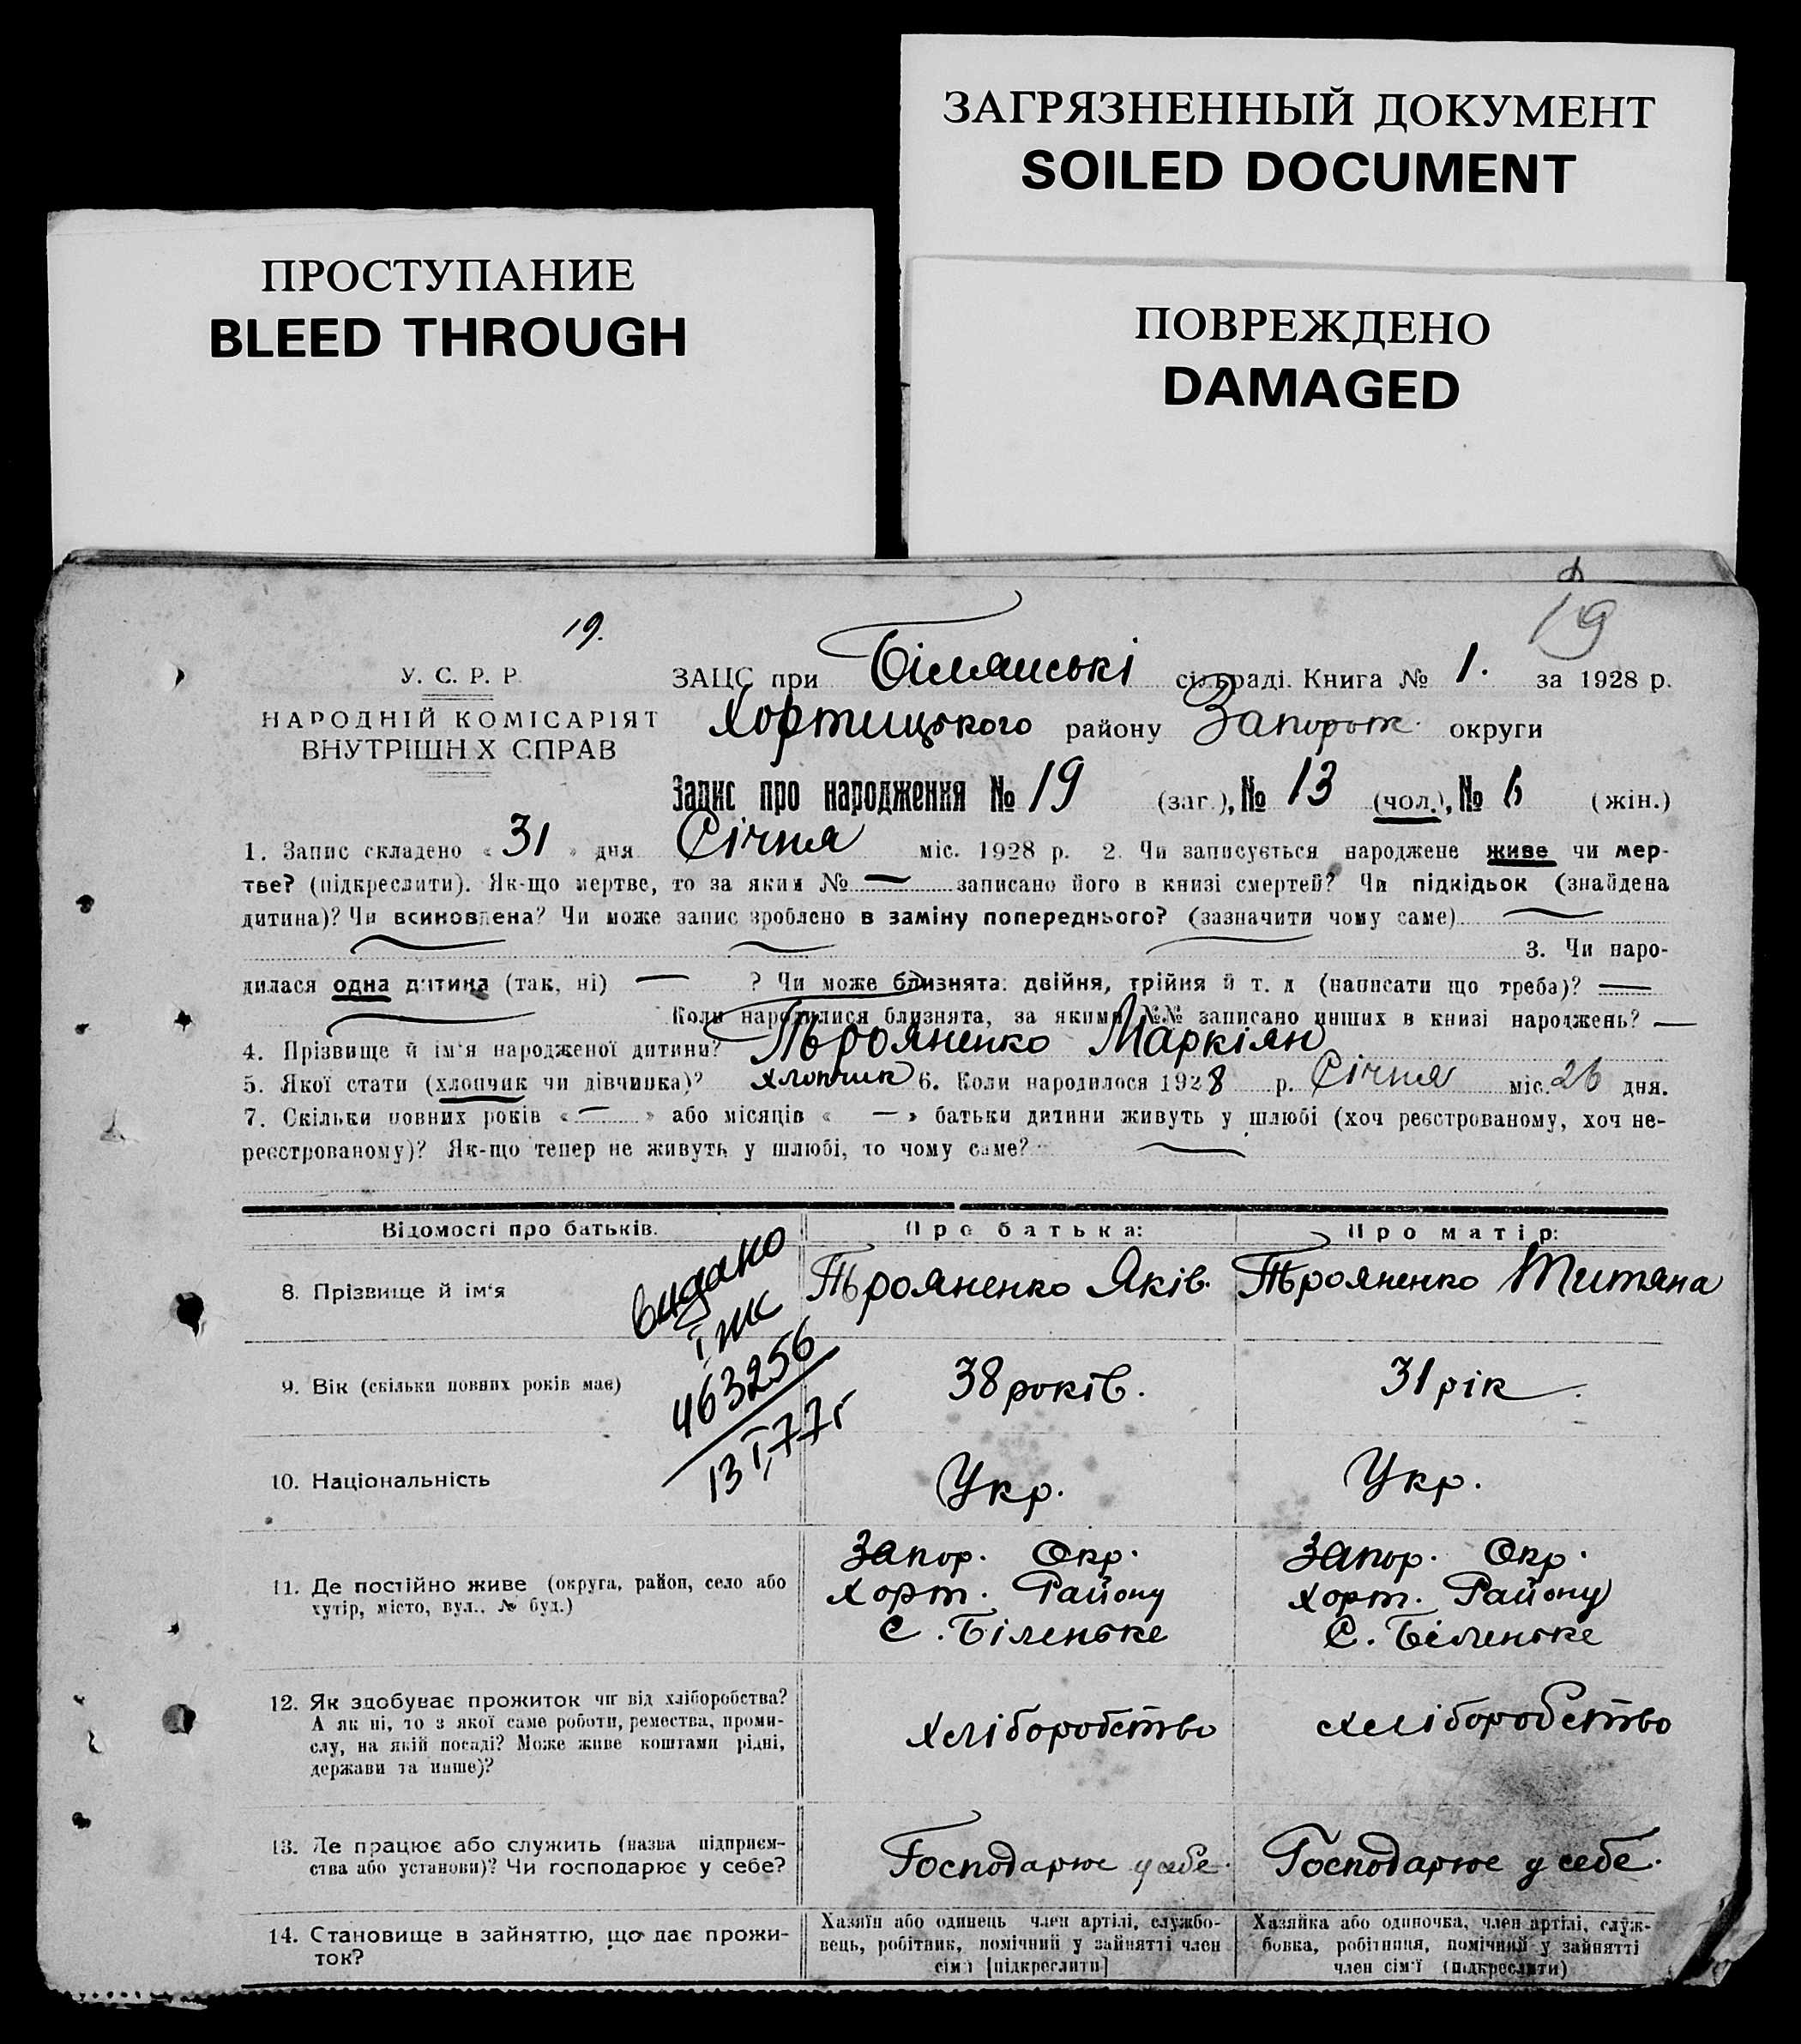 ЗАГРЯЗНЕННЫЙ ДОКУМЕНТ
SOILED DOCUMENT
ПРОСТУПАНИЕ
BLEED THROUGH
ПОВРЕЖДЕНО
DAMAGED
19
19.
У. С. Р. Р.
НАРОДНІЙ КОМІСАРІЯТ
ВНУТРІШН Х СПРАВ
ЗАЦС при Білянські сільраді. Книга № 1. за 1928 р.
Хортицького району Запорож. округи
Запис про народження № 19 (заг.), № 13 (чол.), № 6 (жін.)
1. Запис складено « 31 » дня Січня міс. 1928 р. 2. Чи записується народжене живе чи мер-
тве? (підкреслити). Як-що мертве, то за яким № — записано його в книзі смертей? Чи підкідьок (знайдена
дитина)? Чи всиновлена? Чи може запис зроблено в заміну попереднього? (зазначити чому саме)
3. Чи наро-
дилася одна дитина (так, ні) — ? Чи може близнята: двійня, трійня й т. д (написати що треба)? —
Коли народилися близнята, за якими №№ записано инших в книзі народжень? —
4. Прізвище й ім'я народженої дитини? Трояненко Маркіян
5. Якої стати (хлопчик чи дівчинка)? хлопчик 6. Коли народилося 1928 р. Січня міс. 26 дня.
7. Скільки повних років « — » або місяців « — » батьки дитини живуть у шлюбі (хоч реєстрованому, хоч не-
реєстрованому)? Як-що тепер не живуть у шлюбі, то чому саме?
Відомості про батьків. Про батька: Про матір:
8. Прізвище й ім'я Трояненко Яків. Трояненко Титяна
видано
463256
13 I, 77 г
9. Вік (скільки повних років має) 38 років. 31 рік.
10. Національність Укр. Укр.
11. Де постійно живе (округа, район, село або
хутір, місто, вул., № буд.)
Запор. Окр.
Хорт. Району
С. Біленьке
Запор. Окр.
Хорт. Району
С. Біленьке
12. Як здобуває прожиток чи від хліборобства?
А як ні, то з якої саме роботи, ремества, проми-
слу, на якій посаді? Може живе коштами рідні,
держави та инше)?
Хліборобство
Хліборобство
13. Де працює або служить (назва підприєм-
ства або установи)? Чи господарює у себе?
Господарює у себе.
Господарює у себе.
14. Становище в зайняттю, що дає прожи-
ток?
Хазяїн або одинець член артілі, службо-
вець, робітник, помічний у зайнятті член
сім'ї [підкреслити]
Хазяйка або одиночка, член артілі, служ-
бовка, робітниця, помічний у зайнятті
член сім'ї (підкреслити)